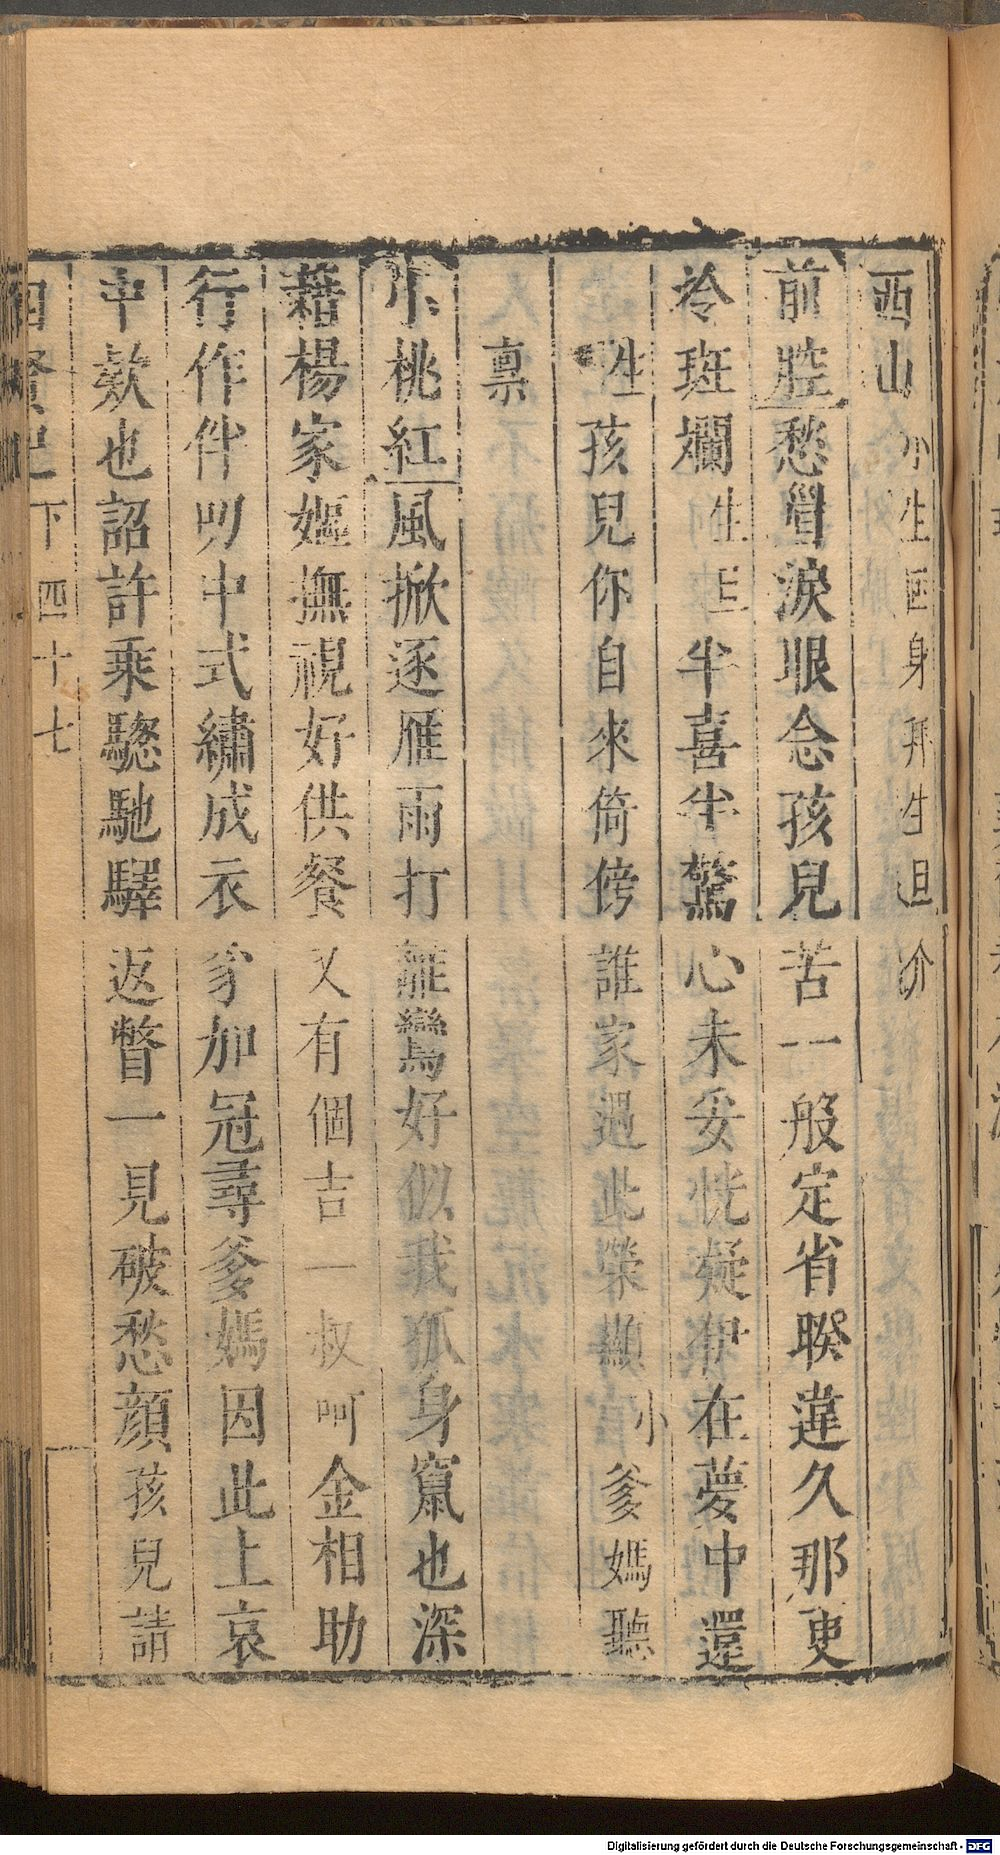 西山小生回身拜生旦介
前腔愁眉淚眼念孩兒苦一般定省暌違久那更
衣斑斕生旦半喜半驚心未妥恍疑伊在夢中還
生孩兒你自來倚傍誰家遇此榮顯小爹媽聽
禀
小桃紅風掀逐雁雨打離鸞好似我孤身竄也深
藉楊家嫗撫視好供餐又有個吉一叔呵金相助
行作伴叨中式繡成衣豸加冠尋爹媽因此上哀
申欵也詔許乘驄馳驛返瞥一見破愁顏孩兒請
四賢記 下 四十七
Digitalisierung gefördert durch die Deutsche Forschungsgemeinschaft - DFG